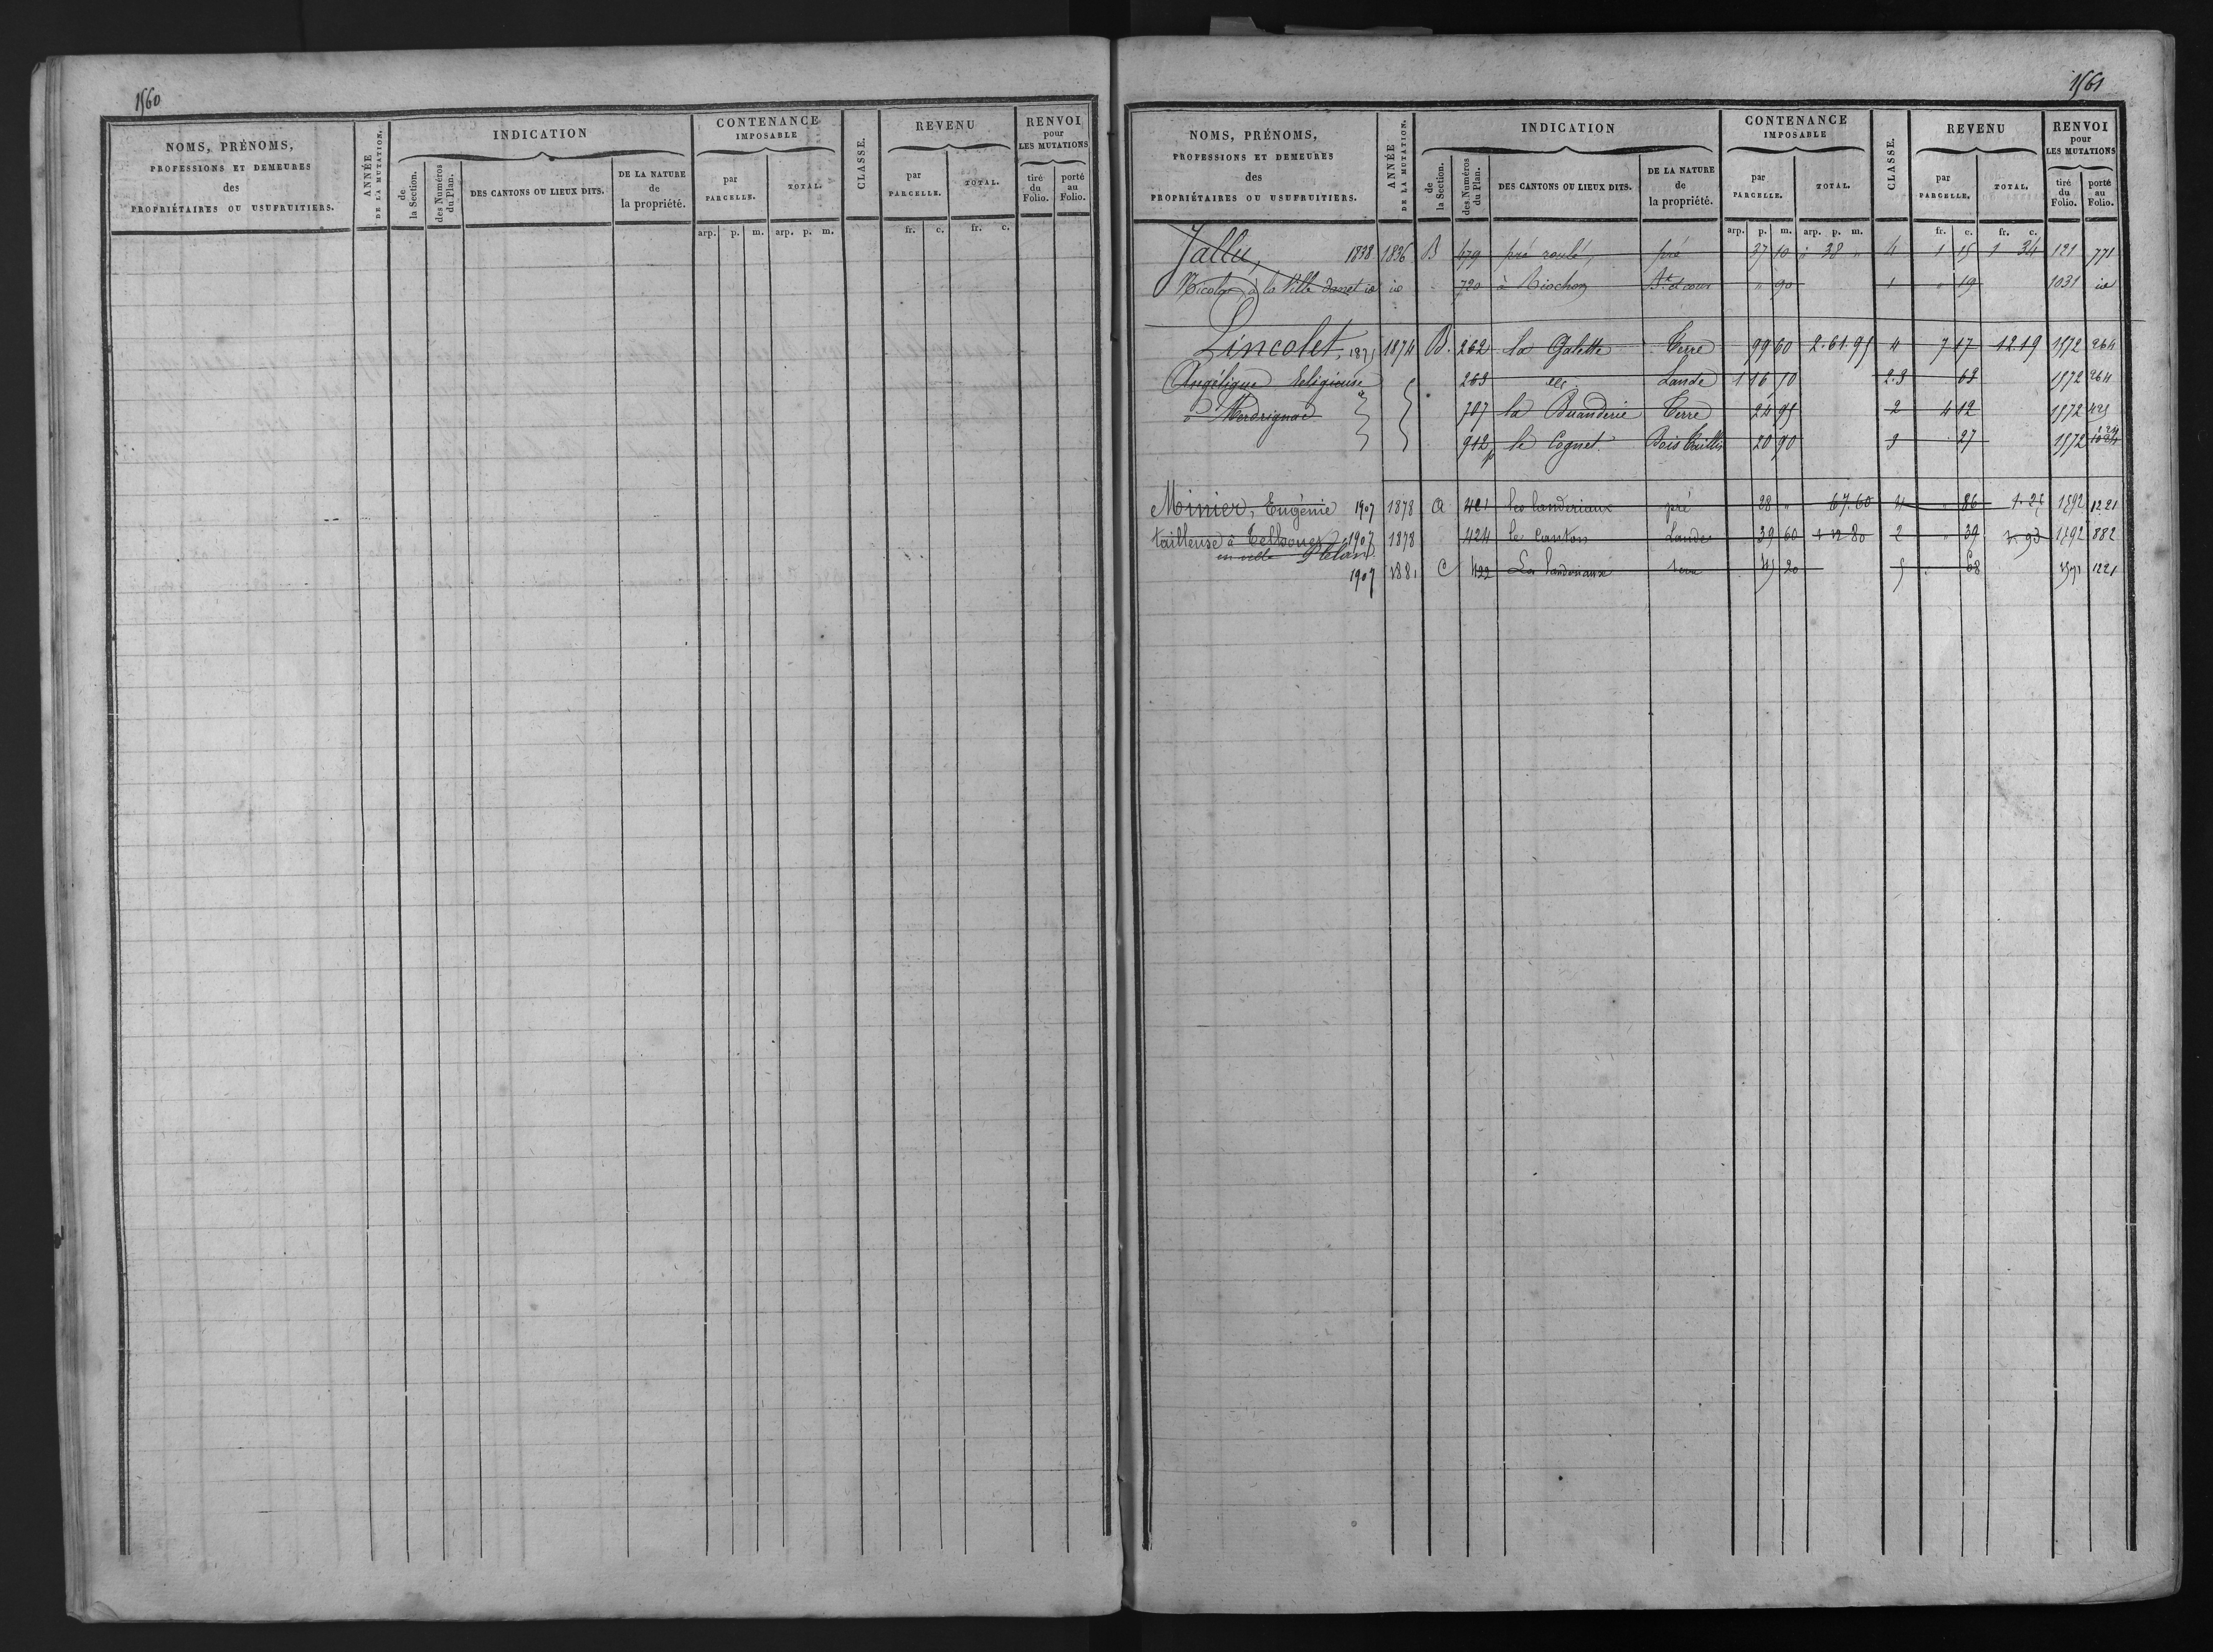 1560
NOMS, PRÉNOMS, PROFESSIONS ET DEMEURES des PROPRIÉTAIRES OU USUFRUITIERS.
ANNÉE DE LA MUTATION.
INDICATION
de la Section.
des Numéros du Plan.
DES CANTONS OU LIEUX DITS.
DE LA NATURE de la propriété.
CONTENANCE IMPOSABLE
par PARCELLE.
TOTAL.
CLASSE.
REVENU
par PARCELLE.
TOTAL.
RENVOI pour LES MUTATIONS
tiré du Folio.
porté au Folio.
arp. p. m. arp. p. m. fr. c. fr. c.
1561
NOMS, PRÉNOMS, PROFESSIONS ET DEMEURES des PROPRIÉTAIRES OU USUFRUITIERS.
ANNÉE DE LA MUTATION.
INDICATION
de la Section.
des Numéros du Plan.
DES CANTONS OU LIEUX DITS.
DE LA NATURE de la propriété.
CONTENANCE IMPOSABLE
par PARCELLE.
TOTAL.
CLASSE.
REVENU
par PARCELLE.
TOTAL.
RENVOI pour LES MUTATIONS
tiré du Folio.
porté au Folio.
arp. p. m. arp. p. m. fr. c. fr. c.
Jallu, 1838 1836 B 479 pré roulé, pré 37 10 " 38 " 4 1 15 1 34 121 771
Nicolas à la Ville danet id id 720 à Riochon Bt et cour " 90 1 " 19 1031 id
Lincolet, 1875 1874 B. 262 la Galette Terre 99 60 2.61.95 4 7 17 12.19 1572 264
Angélique Religieuse 263 Lande 1 16 50 2.3 63 1572 264
à Merdrignac 707 la Buanderie Terre 24 95 2 4 12 1572 425
912 p le Cognet Bois taillis 20 90 3 27 1572
Minier, Eugénie 1907 1878 A 421 les landeriaux pré 28 " 67.60 4 " 86 1.25 1592 1221
tailleuse à 1907 1878 424 le Canton Lande 39 60 1 12 80 2 " 39 1 93 1592 882
Plélan
1907 1881 C 422 Les landeriaux terre 45 20 5 68 1571 1221